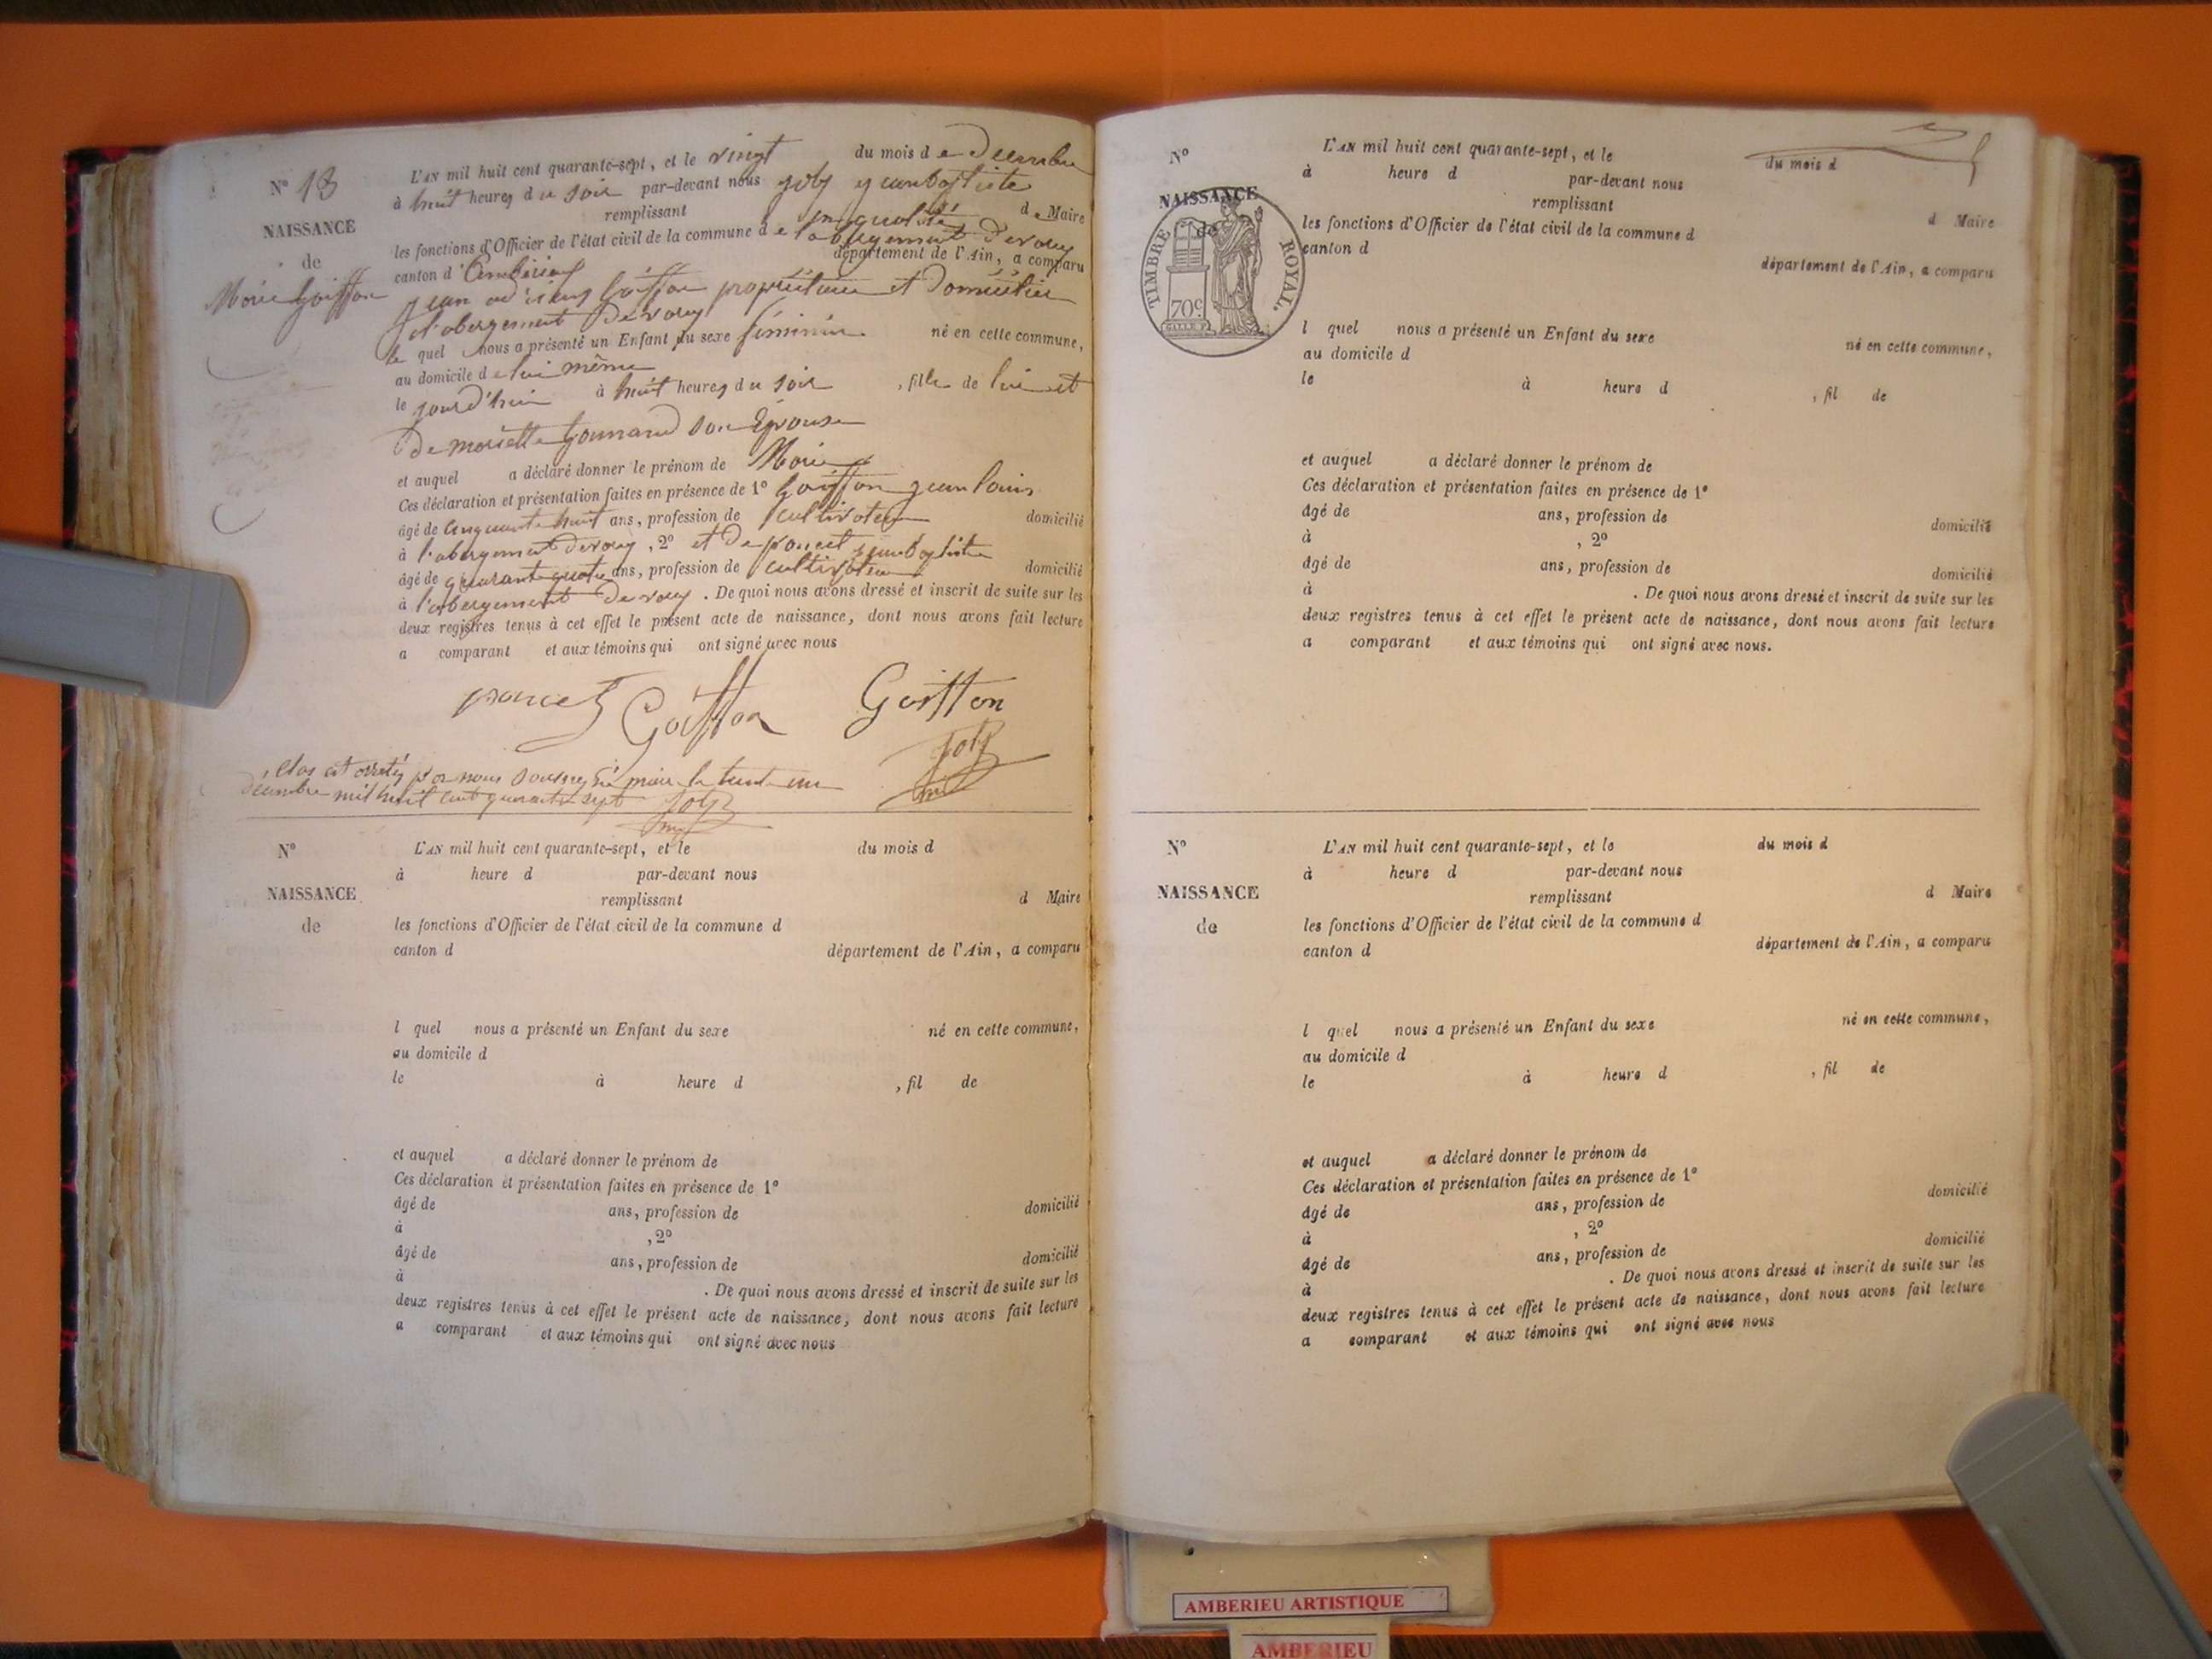 N° 18
NAISSANCE
de
Marie Goiffon
L'AN mil huit cent quarante-sept, et le vingt du mois de Decembre
à huit heures du soir par-devant nous joly jean baptiste
remplissant en qualité de Maire
les fonctions d'Officier de l'état civil de la commune de l'abergement Devarey
canton d'Amberieu département de l'Ain, a comparu
jean Goiffon propriétaire et Domicilié
l'abergement Devarey
le quel nous a présenté un Enfant du sexe féminin né en cette commune,
au domicile de lui même
le jourd'hui à huit heures du soir, fille de lui et
De mariette Gonnard Son Épouse
et auquel a déclaré donner le prénom de Marie
Ces déclaration et présentation faites en présence de 1° Goiffon jean louis
âgé de Cinquante huit ans, profession de cultivateur domicilié
à l'abergement Devarey, 2° et De poncet jean baptiste
âgé de quarante quatre ans, profession de cultivateur domicilié
à l'abergement Devarey. De quoi nous avons dressé et inscrit de suite sur les
deux registres tenus à cet effet le présent acte de naissance, dont nous avons fait lecture
a comparant et aux témoins qui ont signé avec nous
poncet Goiffon Goiffon
joly
Clos et arrêté par nous Soussigné maire le trente un
Décembre mil huit cent quarante sept joly
N°
NAISSANCE
de
L'AN mil huit cent quarante-sept, et le du mois d
à heure d par-devant nous
remplissant d Maire
les fonctions d'Officier de l'état civil de la commune d
canton d département de l'Ain, a comparu
l quel nous a présenté un Enfant du sexe né en cette commune,
au domicile d
le à heure d , fil de
et auquel a déclaré donner le prénom de
Ces déclaration et présentation faites en présence de 1°
âgé de ans, profession de domicilié
à , 2°
âgé de ans, profession de domicilié
à . De quoi nous avons dressé et inscrit de suite sur les
deux registres tenus à cet effet le présent acte de naissance, dont nous avons fait lecture
a comparant et aux témoins qui ont signé avec nous
N°
NAISSANCE
de
TIMBRE ROYAL.
70c
L'AN mil huit cent quarante-sept, et le du mois d
à heure d par-devant nous
remplissant d Maire
les fonctions d'Officier de l'état civil de la commune d
canton d département de l'Ain, a comparu
l quel nous a présenté un Enfant du sexe né en cette commune,
au domicile d
le à heure d , fil de
et auquel a déclaré donner le prénom de
Ces déclaration et présentation faites en présence de 1°
âgé de ans, profession de domicilié
à , 2°
âgé de ans, profession de domicilié
à . De quoi nous avons dressé et inscrit de suite sur les
deux registres tenus à cet effet le présent acte de naissance, dont nous avons fait lecture
a comparant et aux témoins qui ont signé avec nous.
N°
NAISSANCE
de
L'AN mil huit cent quarante-sept, et le du mois d
à heure d par-devant nous
remplissant d Maire
les fonctions d'Officier de l'état civil de la commune d
canton d département de l'Ain, a comparu
l quel nous a présenté un Enfant du sexe né en cette commune,
au domicile d
le à heure d , fil de
et auquel a déclaré donner le prénom de
Ces déclaration et présentation faites en présence de 1°
âgé de ans, profession de domicilié
à , 2°
âgé de ans, profession de domicilié
à . De quoi nous avons dressé et inscrit de suite sur les
deux registres tenus à cet effet le présent acte de naissance, dont nous avons fait lecture
a comparant et aux témoins qui ont signé avec nous
AMBERIEU ARTISTIQUE
AMBERIEU